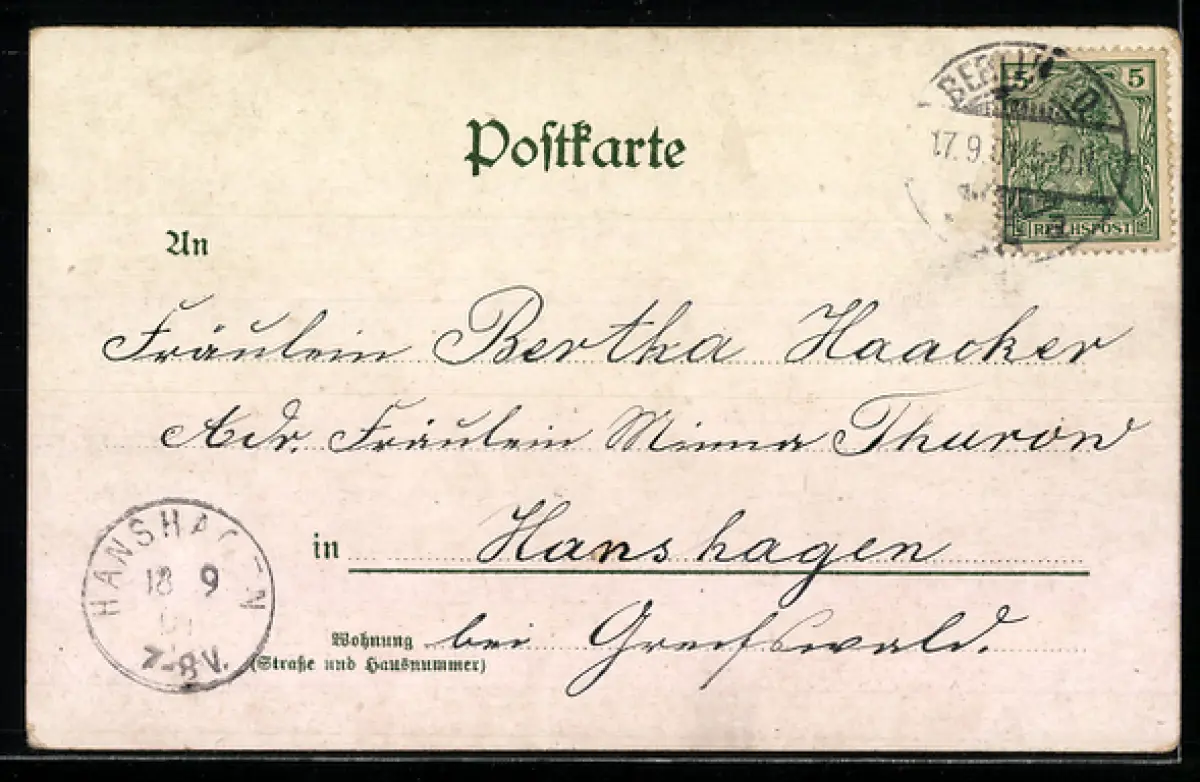 Postkarte
5 5
REICHSPOST
BERLIN
17.9.
An
Fräulein Bertha Haacker
Adr. Fräulein Minna Thurow
in Hanshagen
Wohnung bei Greifswald.
(Straße und Hausnummer)
HANSHAGEN
18 9
7-8V.